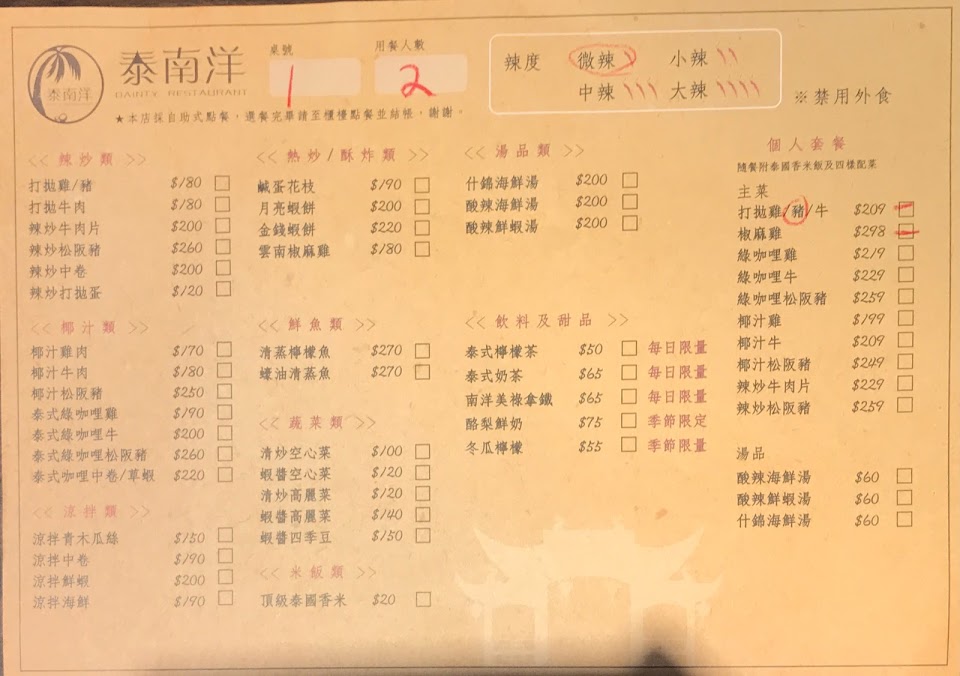 泰南洋
泰南洋
DAINTY RESTAURANT
桌號 1
用餐人數 2
★本店採自助式點餐，選餐完畢請至櫃檯點餐並結帳，謝謝。
辣度 微辣 小辣
中辣 大辣
※禁用外食
<< 辣炒類 >>
打拋雞/豬 $180
打拋牛肉 $180
辣炒牛肉片 $200
辣炒松阪豬 $260
辣炒中卷 $200
辣炒打拋蛋 $120
<< 椰汁類 >>
椰汁雞肉 $170
椰汁牛肉 $180
椰汁松阪豬 $250
泰式綠咖哩雞 $190
泰式綠咖哩牛 $200
泰式綠咖哩松阪豬 $260
泰式咖哩中卷/草蝦 $220
<< 涼拌類 >>
涼拌青木瓜絲 $150
涼拌中卷 $190
涼拌鮮蝦 $200
涼拌海鮮 $190
<< 熱炒/酥炸類 >>
鹹蛋花枝 $190
月亮蝦餅 $200
金錢蝦餅 $220
雲南椒麻雞 $180
<< 鮮魚類 >>
清蒸檸檬魚 $270
蠔油清蒸魚 $270
<< 蔬菜類 >>
清炒空心菜 $100
蝦醬空心菜 $120
清炒高麗菜 $120
蝦醬高麗菜 $140
蝦醬四季豆 $150
<< 米飯類 >>
頂級泰國香米 $20
<< 湯品類 >>
什錦海鮮湯 $200
酸辣海鮮湯 $200
酸辣鮮蝦湯 $200
<< 飲料及甜品 >>
泰式檸檬茶 $50 每日限量
泰式奶茶 $65 每日限量
南洋美祿拿鐵 $65 每日限量
酪梨鮮奶 $75 季節限定
冬瓜檸檬 $55 季節限量
個人套餐
隨餐附泰國香米飯及四樣配菜
主菜
打拋雞/豬/牛 $209
椒麻雞 $298
綠咖哩雞 $219
綠咖哩牛 $229
綠咖哩松阪豬 $259
椰汁雞 $199
椰汁牛 $209
椰汁松阪豬 $249
辣炒牛肉片 $229
辣炒松阪豬 $259
湯品
酸辣海鮮湯 $60
酸辣鮮蝦湯 $60
什錦海鮮湯 $60